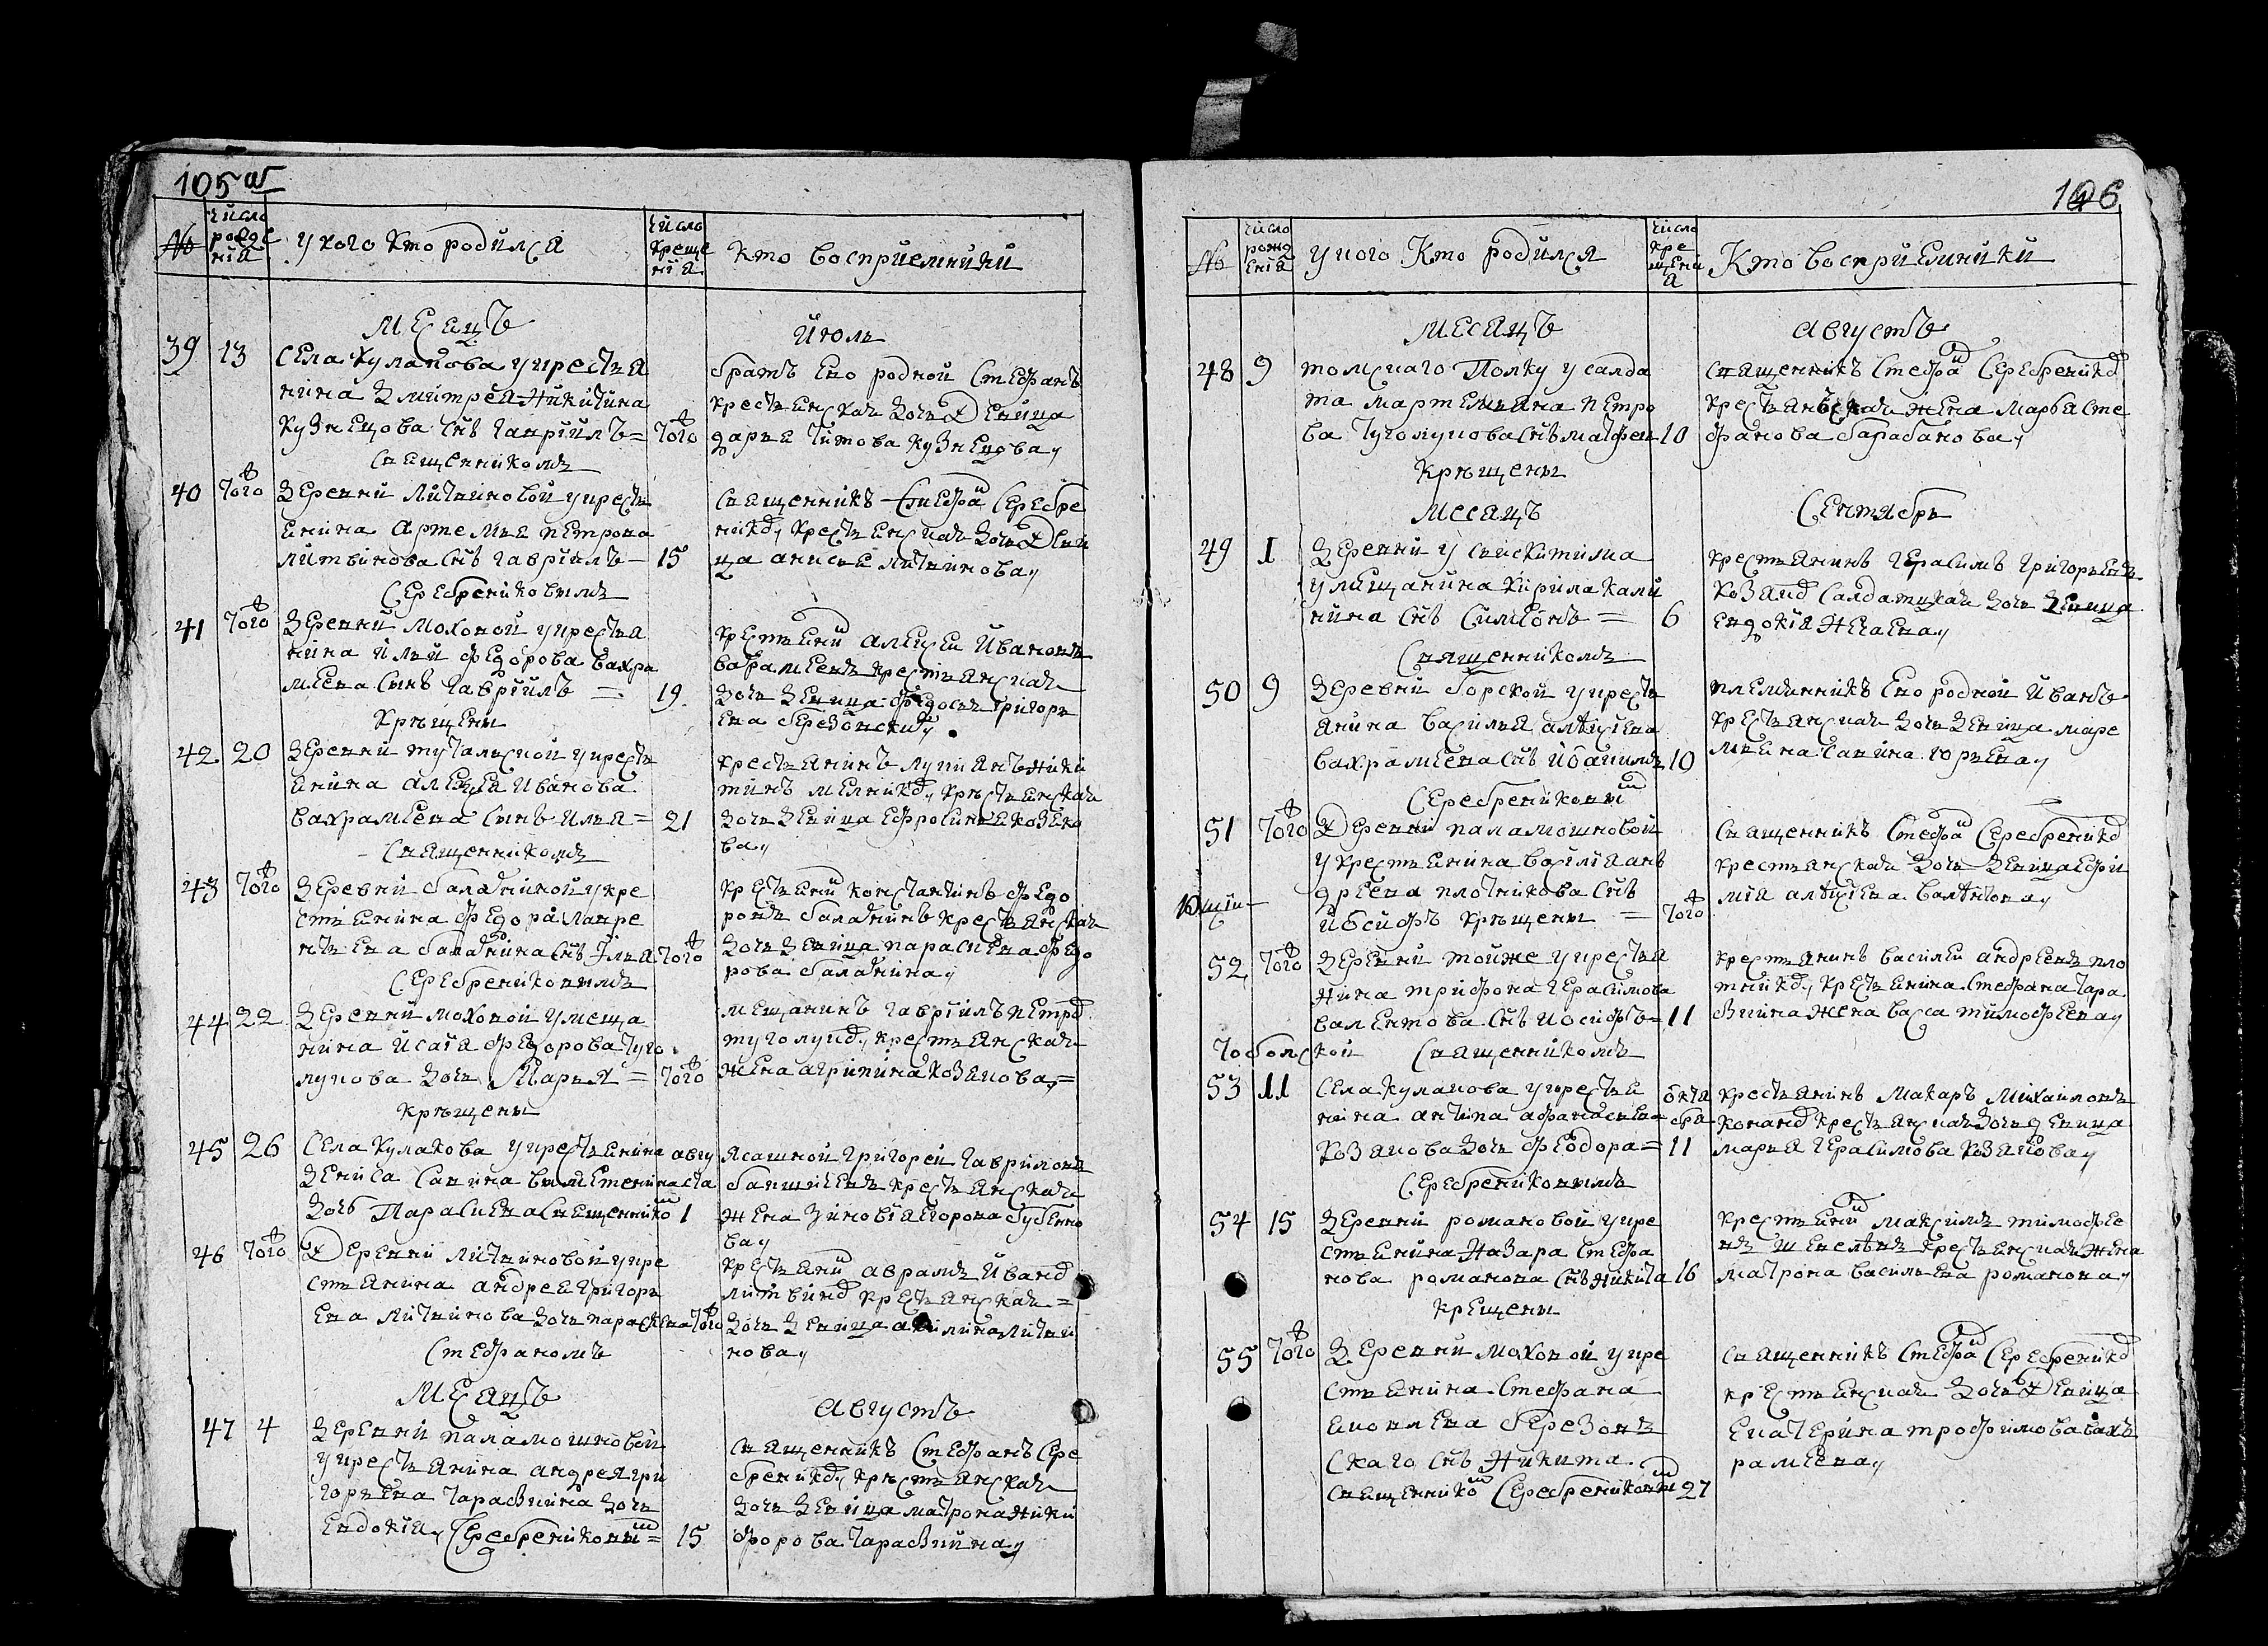 105 об
№
число рожде нїя
у кого кто родился
число креще нїя
кто восприемники
месяцъ
июль
39 13 села Кулакова у крестья
нина Дмитрея Никитина
Кузнецова снъ Гавріилъ = того
священникомъ
братъ ево родной Стефанъ
крестьянская дочь девица
дарья титова кузнецова,
40 того Деревни Литвиновой у кресть
янина артемья петрова
литвинова снъ гавріилъ - 15
Серебрениковымъ
священникъ Стефа Серебре
никовъ, крестьянская дочь деви
ца анисья литвинова,
41 того Деревни Моховой у крестья
нина Ильи Федорова вахра
меева сынъ гавріилъ = 19
Крещены
крестьянинъ алексеи Ивановъ
вахрамеевъ крестьянская
дочь девица федосья григорь
ева березовскихъ,
42 20 Деревни тутальской у кресть
янина алексея Иванова
вахрамеева сынъ илья = 21
священникомъ
крестьянинъ лукиянъ ники
тинъ мелниковъ, крестьянская
дочь девица ефросинья козеко
ва,
43 того Деревни балахниной у кре
стьянина федора лавре
нтьева балахнина снъ Илья того
Серебрениковымъ
крестьянинъ константинъ федо
ровъ балахнинъ крестьянская
дочь девица парасковья федо
рова балахнина,
44 22 Деревни моховой у меща
нина Исаія Федорова туго
лукова дочь Марья = того
крещены
мещанинъ гавріилъ петровъ
туголуковъ, крестьянская
жена агрипина козакова, =
45 26 села кулакова у крестьянина авгу
Дениса савина выметенина ста
дочь Параскева священнико 1
ясашной григореи гавриловъ
бапшиевъ крестьянская
жена зиновія егорова бубенно
ва,
46 того Деревни литвиновой у кре
стьянина андрея григорь
ева литвинова дочь параскева того
Стефаномъ
крестьянинъ аврамъ Ивановъ
литвиновъ крестьянская =
дочь девица акилина литви
нова,
месяцъ
августъ
47 4 Деревни паламошновой
у крестьянина андрея гри
горьева гараскина дочь
Евдокія, Серебрениковымъ = 15
священникъ Стефанъ Сере
брениковъ, крестьянская
дочь девица матрона ники
форова гараскина,
106
№
число рожд енія
у кого кто родился
число кре щені я
Кто восприемники
месяцъ
августъ
48 9 томскаго Полку у салда
та мартемьяна петро
ва туголукова снъ матфеи 10
крещены
священникъ Стефа Серебрениковъ
крестьянская жена марфа сте
фанова барабанова,
месяцъ
Сентябрь
49 1 Деревни усвискитима
у мещанина кирила кали
нина снъ Симеонъ = 6
священникомъ
крестьянинъ герасимъ григорьевъ
козаковъ салдатская дочь девица
евдокія
50 9 Деревни борской у кресть
янина василья алексеева
вахрамеева снъ Іоакимъ 10
Серебрениковы
племянникъ ево родной Иванъ
крестьянская дочь девица маре
мьяна савина юрьева,
51 того Деревни паламошновой
у крестьянина василія ан
дреева плотникова снъ
Иосифъ крещены = того
священникъ Стефа Серебрениковъ
крестьянская дочь девица ефи
мія алексеева валентова,
52 того Деревни тойже у крестья
нина трифона герасимова
валентова снъ иосифъ = 11
тобольской священникомъ
крестьянинъ василеи андреевъ пло
тниковъ, крестьянина стефана гара
скина жена васса тимофеева,
53 11 села кулакова у крестья октя
нина антипа афанасьева бря
козакова дочь феодора = 11
Серебрениковымъ
крестьянинъ макаръ михаиловъ
конановъ крестьянская дочь девица
марья герасимова козакова,
54 15 Деревни романовой у кре
стьянина назара стефа
нова романова снъ никита 16
крещены
крестьянинъ максимъ тимофее
въ шевелевъ крестьянская жена
матрона васильева романова,
55 того Деревни моховой у кре
стьянина стефана
яковлева березовъ
скаго снъ никита
священнико Серебрениковы 27
священникъ Стефа Серебрениковъ
крестьянская дочь девица
екатерина трофимова вахъ
рамеева,